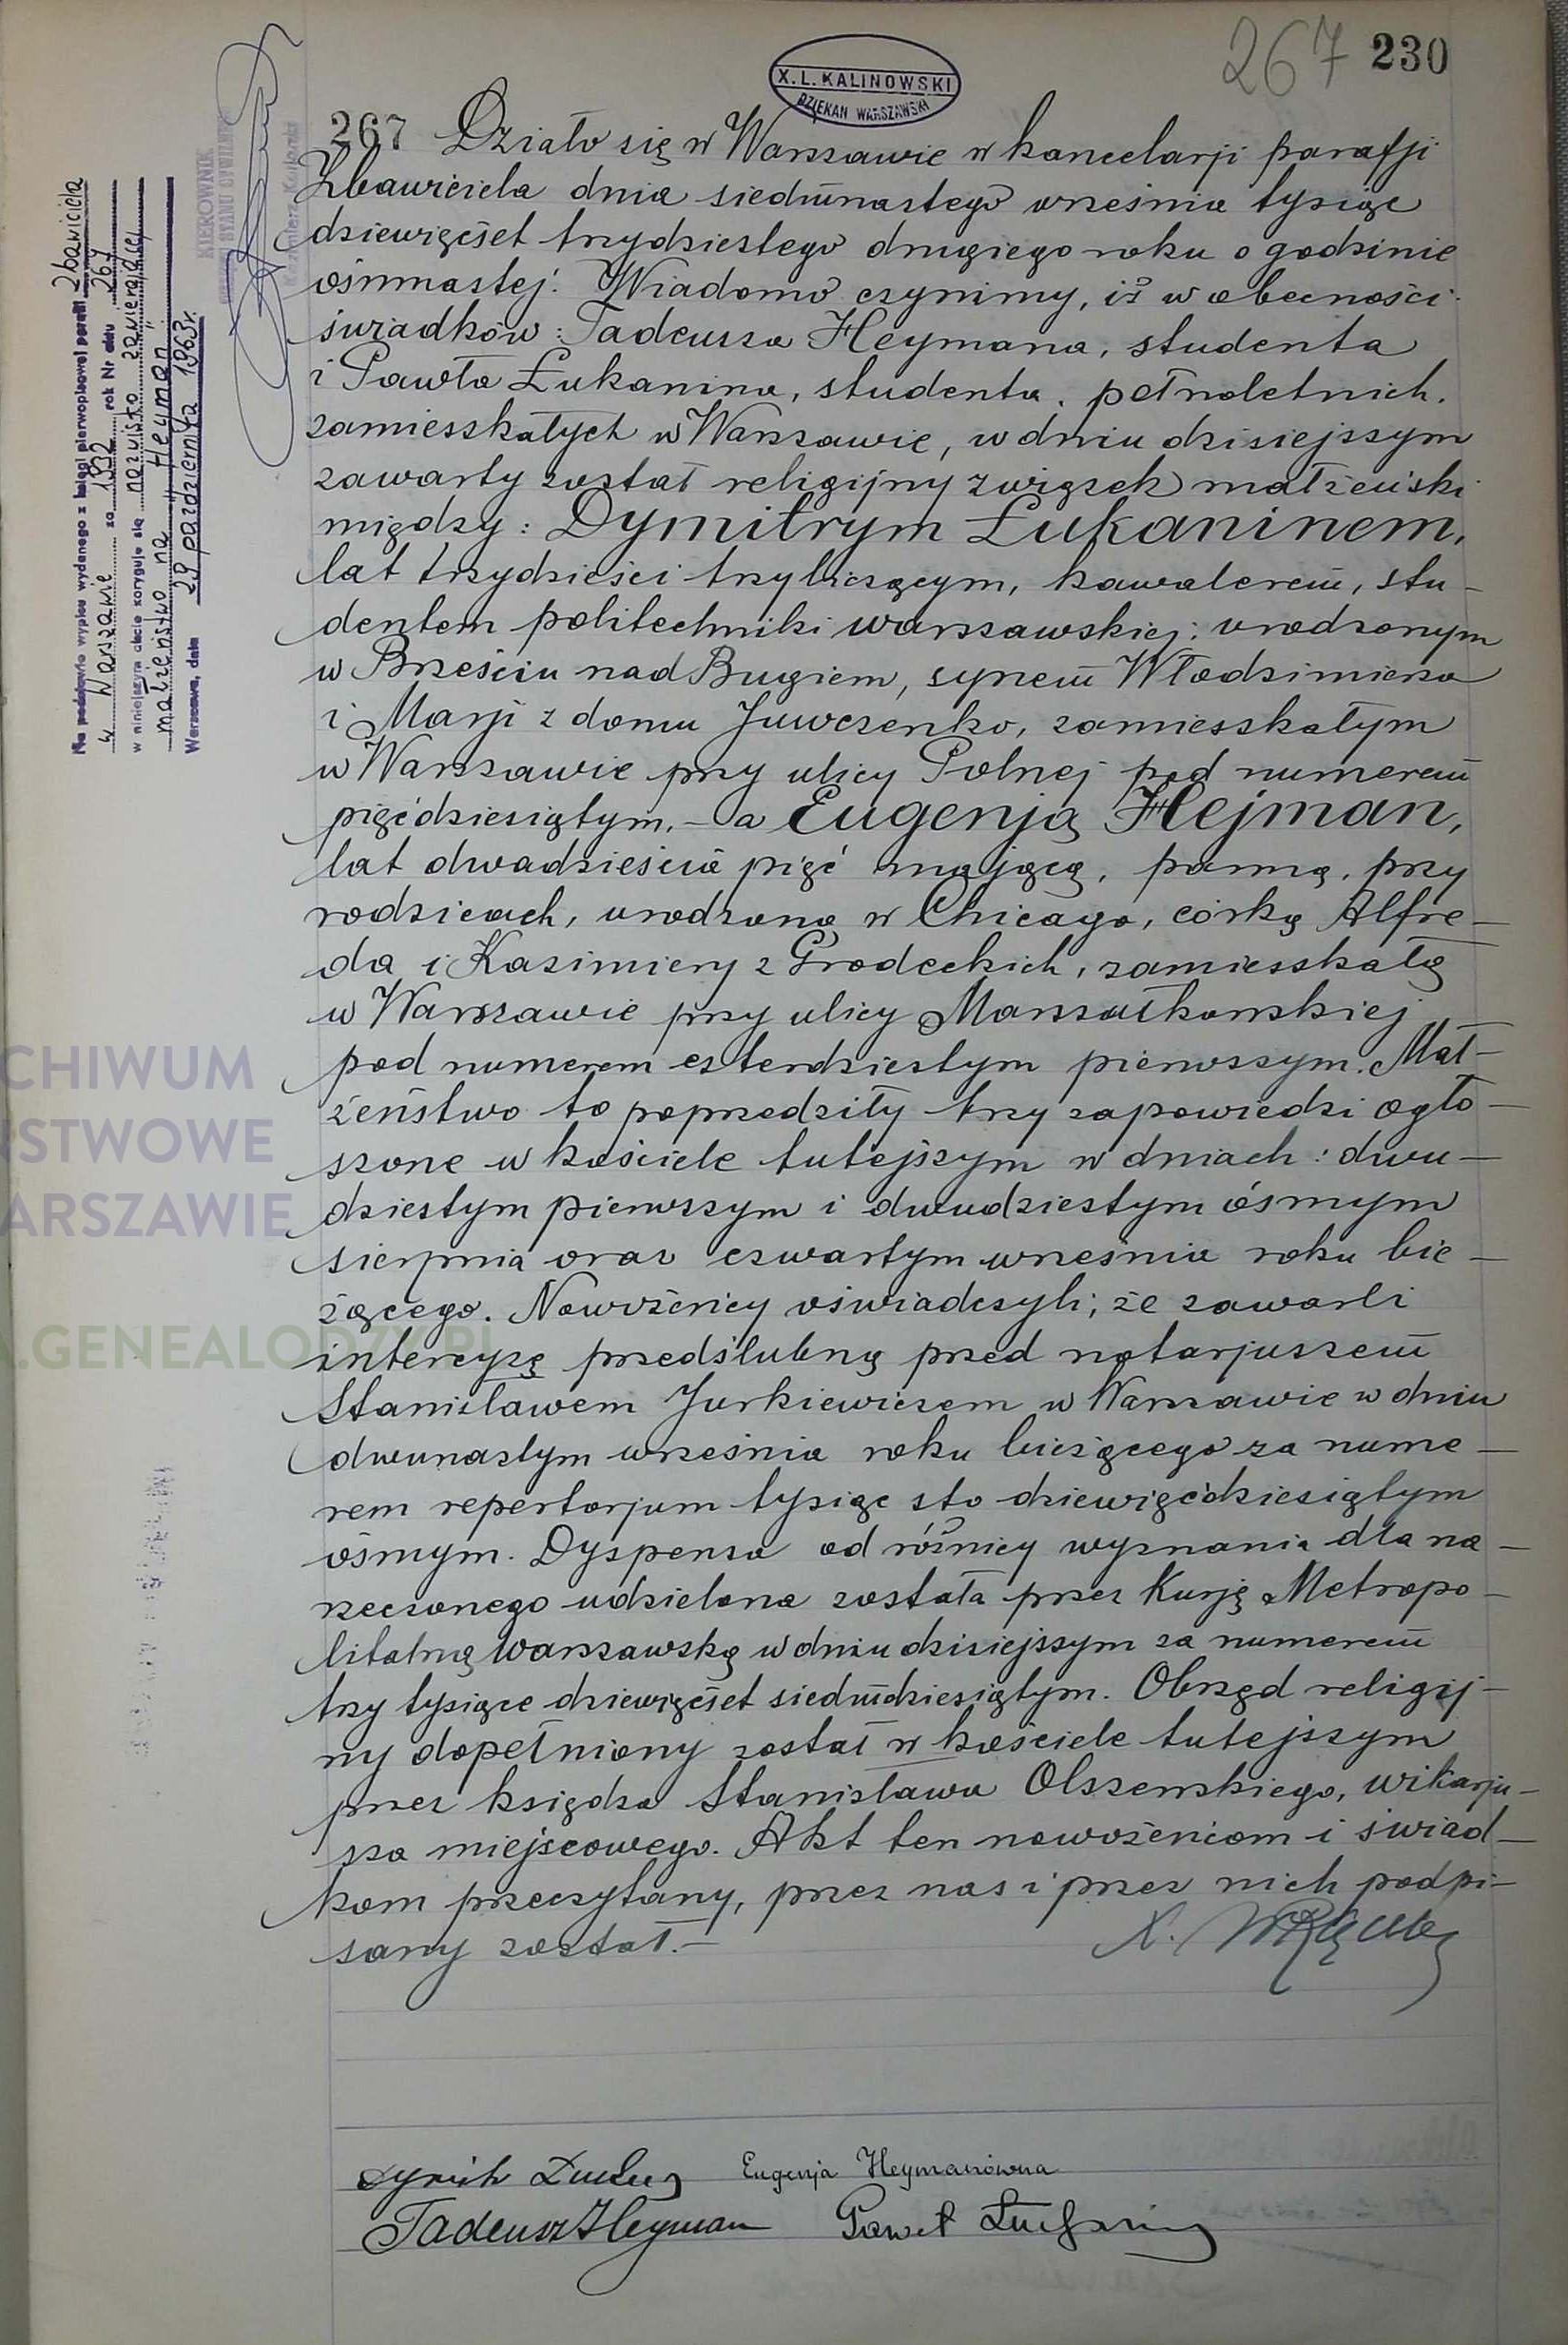 267 230
X. L. KALINOWSKI
DZIEKAN WARSZAWSKI
267 Działo się w Warszawie w kancelarji parafji
Zbawiciela dnia siedmnastego września tysiąc
dziewięćset trzydziestego drugiego roku o godzinie
ośmnastej. Wiadomo czynimy, iż w obecności
świadków: Tadeusza Heymana, studenta
i Pawła Łukanina, studenta, pełnoletnich,
zamieszkałych w Warszawie, w dniu dzisiejszym
zawarty został religijny związek małżeński
między: Dymitrym Łukaninem,
lat trzydzieści trzy liczącym, kawalerem, stu-
dentem politechniki warszawskiej, urodzonym
w Brześciu nad Bugiem, synem Włodzimierza
i Marji z domu Juwczenko, zamieszkałym
w Warszawie przy ulicy Polnej pod numerem
pięćdziesiątym, - a Eugenją Hejman,
lat dwadzieścia pięć mającą, panną, przy
rodzicach, urodzoną w Chicago, córką Alfre-
da i Kazimiery z Grodeckich, zamieszkałą
w Warszawie przy ulicy Marszałkowskiej
pod numerem czterdziestym pierwszym. Mał-
żeństwo to poprzedziły trzy zapowiedzi ogło-
szone w kościele tutejszym w dniach: dwu-
dziestym pierwszym i dwudziestym ósmym
sierpnia oraz czwartym września roku bie-
żącego. Nowożeńcy oświadczyli, że zawarli
intercyzę przedślubną przed notarjuszem
Stanisławem Jurkiewiczem w Warszawie w dniu
dwunastym września roku bieżącego za nume-
rem repertorjum tysiąc sto dziewięćdziesiątym
ósmym. Dyspensa od różnicy wyznania dla na-
rzeczonego udzielona została przez Kurję Metropo-
litalną Warszawską w dniu dzisiejszym za numerem
trzy tysiące dziewięćset siedmdziesiątym. Obrzęd religij-
ny dopełniony został w kościele tutejszym
przez księdza Stanisława Olszewskiego, wikarju-
sza miejscowego. Akt ten nowożeńcom i świad-
kom przeczytany, przez nas i przez nich podpi-
sany został.-
X.
Eugenja Heymanówna
Tadeusz Heyman Paweł Łukanin
Na podstawie wypisu wydanego z księgi pierwopisowej parafii Zbawiciela
w Warszawie za 1932 rok Nr aktu 267
w niniejszym akcie koryguje się nazwisko zawierającej
małżeństwo na "Heyman"
Warszawa, dnia 29 października 1963r.
KIEROWNIK
URZĘDU STANU CYWILNEGO
CHIWUM
ŃSTWOWE
ARSZAWIE
A.GENEALODZY.PL